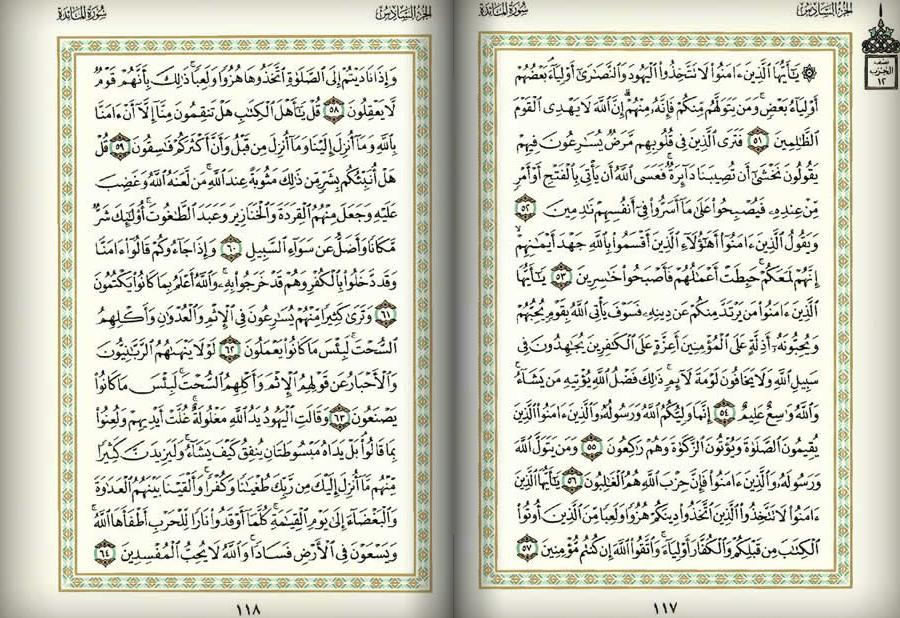 الجزء السادس
سورة المائدة
نصف
الحزب
١٢
۞ يَٰٓأَيُّهَا ٱلَّذِينَ ءَامَنُوا۟ لَا تَتَّخِذُوا۟ ٱلْيَهُودَ وَٱلنَّصَٰرَىٰٓ أَوْلِيَآءَ ۘ بَعْضُهُمْ
أَوْلِيَآءُ بَعْضٍ ۚ وَمَن يَتَوَلَّهُم مِّنكُمْ فَإِنَّهُۥ مِنْهُمْ ۗ إِنَّ ٱللَّهَ لَا يَهْدِى ٱلْقَوْمَ
ٱلظَّٰلِمِينَ ٥١ فَتَرَى ٱلَّذِينَ فِى قُلُوبِهِم مَّرَضٌ يُسَٰرِعُونَ فِيهِمْ
يَقُولُونَ نَخْشَىٰٓ أَن تُصِيبَنَا دَآئِرَةٌ ۚ فَعَسَى ٱللَّهُ أَن يَأْتِىَ بِٱلْفَتْحِ أَوْ أَمْرٍ
مِّنْ عِندِهِۦ فَيُصْبِحُوا۟ عَلَىٰ مَآ أَسَرُّوا۟ فِىٓ أَنفُسِهِمْ نَٰدِمِينَ ٥٢
وَيَقُولُ ٱلَّذِينَ ءَامَنُوٓا۟ أَهَٰٓؤُلَآءِ ٱلَّذِينَ أَقْسَمُوا۟ بِٱللَّهِ جَهْدَ أَيْمَٰنِهِمْ ۙ
إِنَّهُمْ لَمَعَكُمْ ۚ حَبِطَتْ أَعْمَٰلُهُمْ فَأَصْبَحُوا۟ خَٰسِرِينَ ٥٣ يَٰٓأَيُّهَا
ٱلَّذِينَ ءَامَنُوا۟ مَن يَرْتَدَّ مِنكُمْ عَن دِينِهِۦ فَسَوْفَ يَأْتِى ٱللَّهُ بِقَوْمٍ يُحِبُّهُمْ
وَيُحِبُّونَهُۥٓ أَذِلَّةٍ عَلَى ٱلْمُؤْمِنِينَ أَعِزَّةٍ عَلَى ٱلْكَٰفِرِينَ يُجَٰهِدُونَ فِى
سَبِيلِ ٱللَّهِ وَلَا يَخَافُونَ لَوْمَةَ لَآئِمٍ ۚ ذَٰلِكَ فَضْلُ ٱللَّهِ يُؤْتِيهِ مَن يَشَآءُ ۚ
وَٱللَّهُ وَٰسِعٌ عَلِيمٌ ٥٤ إِنَّمَا وَلِيُّكُمُ ٱللَّهُ وَرَسُولُهُۥ وَٱلَّذِينَ ءَامَنُوا۟ ٱلَّذِينَ
يُقِيمُونَ ٱلصَّلَوٰةَ وَيُؤْتُونَ ٱلزَّكَوٰةَ وَهُمْ رَٰكِعُونَ ٥٥ وَمَن يَتَوَلَّ ٱللَّهَ
وَرَسُولَهُۥ وَٱلَّذِينَ ءَامَنُوا۟ فَإِنَّ حِزْبَ ٱللَّهِ هُمُ ٱلْغَٰلِبُونَ ٥٦ يَٰٓأَيُّهَا ٱلَّذِينَ
ءَامَنُوا۟ لَا تَتَّخِذُوا۟ ٱلَّذِينَ ٱتَّخَذُوا۟ دِينَكُمْ هُزُوًا وَلَعِبًا مِّنَ ٱلَّذِينَ أُوتُوا۟
ٱلْكِتَٰبَ مِن قَبْلِكُمْ وَٱلْكُفَّارَ أَوْلِيَآءَ ۚ وَٱتَّقُوا۟ ٱللَّهَ إِن كُنتُم مُّؤْمِنِينَ ٥٧
١١٧
الجزء السادس
سورة المائدة
وَإِذَا نَادَيْتُمْ إِلَى ٱلصَّلَوٰةِ ٱتَّخَذُوهَا هُزُوًا وَلَعِبًا ۚ ذَٰلِكَ بِأَنَّهُمْ قَوْمٌ
لَّا يَعْقِلُونَ ٥٨ قُلْ يَٰٓأَهْلَ ٱلْكِتَٰبِ هَلْ تَنقِمُونَ مِنَّآ إِلَّآ أَنْ ءَامَنَّا
بِٱللَّهِ وَمَآ أُنزِلَ إِلَيْنَا وَمَآ أُنزِلَ مِن قَبْلُ وَأَنَّ أَكْثَرَكُمْ فَٰسِقُونَ ٥٩ قُلْ
هَلْ أُنَبِّئُكُم بِشَرٍّ مِّن ذَٰلِكَ مَثُوبَةً عِندَ ٱللَّهِ ۚ مَن لَّعَنَهُ ٱللَّهُ وَغَضِبَ
عَلَيْهِ وَجَعَلَ مِنْهُمُ ٱلْقِرَدَةَ وَٱلْخَنَازِيرَ وَعَبَدَ ٱلطَّٰغُوتَ ۚ أُو۟لَٰٓئِكَ شَرٌّ
مَّكَانًا وَأَضَلُّ عَن سَوَآءِ ٱلسَّبِيلِ ٦٠ وَإِذَا جَآءُوكُمْ قَالُوٓا۟ ءَامَنَّا
وَقَد دَّخَلُوا۟ بِٱلْكُفْرِ وَهُمْ قَدْ خَرَجُوا۟ بِهِۦ ۚ وَٱللَّهُ أَعْلَمُ بِمَا كَانُوا۟ يَكْتُمُونَ
٦١ وَتَرَىٰ كَثِيرًا مِّنْهُمْ يُسَٰرِعُونَ فِى ٱلْإِثْمِ وَٱلْعُدْوَٰنِ وَأَكْلِهِمُ
ٱلسُّحْتَ ۚ لَبِئْسَ مَا كَانُوا۟ يَعْمَلُونَ ٦٢ لَوْلَا يَنْهَىٰهُمُ ٱلرَّبَّٰنِيُّونَ
وَٱلْأَحْبَارُ عَن قَوْلِهِمُ ٱلْإِثْمَ وَأَكْلِهِمُ ٱلسُّحْتَ ۚ لَبِئْسَ مَا كَانُوا۟
يَصْنَعُونَ ٦٣ وَقَالَتِ ٱلْيَهُودُ يَدُ ٱللَّهِ مَغْلُولَةٌ ۚ غُلَّتْ أَيْدِيهِمْ وَلُعِنُوا۟
بِمَا قَالُوا۟ ۘ بَلْ يَدَاهُ مَبْسُوطَتَانِ يُنفِقُ كَيْفَ يَشَآءُ ۚ وَلَيَزِيدَنَّ كَثِيرًا
مِّنْهُم مَّآ أُنزِلَ إِلَيْكَ مِن رَّبِّكَ طُغْيَٰنًا وَكُفْرًا ۚ وَأَلْقَيْنَا بَيْنَهُمُ ٱلْعَدَٰوَةَ
وَٱلْبَغْضَآءَ إِلَىٰ يَوْمِ ٱلْقِيَٰمَةِ ۚ كُلَّمَآ أَوْقَدُوا۟ نَارًا لِّلْحَرْبِ أَطْفَأَهَا ٱللَّهُ ۚ
وَيَسْعَوْنَ فِى ٱلْأَرْضِ فَسَادًا ۚ وَٱللَّهُ لَا يُحِبُّ ٱلْمُفْسِدِينَ ٦٤
١١٨